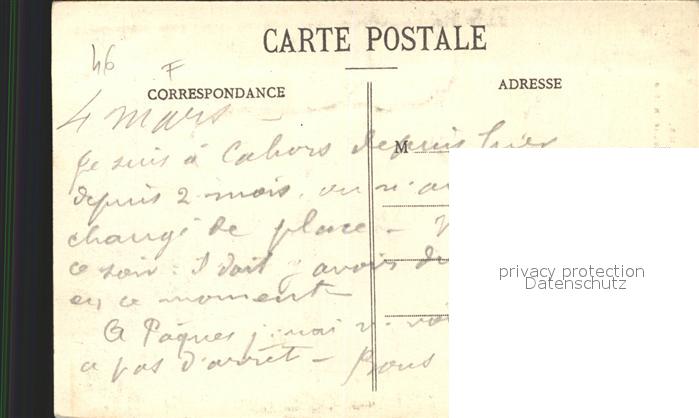 CARTE POSTALE
46 F
CORRESPONDANCE
ADRESSE
4 mars
Je suis à Cahors depuis hier
M
depuis 2 mois. on n'a
changé de place -
ce soir. Il doit y avoir du
privacy protection
Datenschutz
en ce moment -
A Pâques j'irai
a pas d'arrêt - Bons